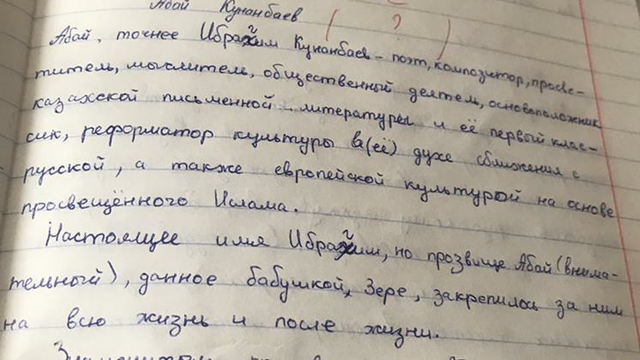 Абай Кунанбаев
( ? )
Абай, точнее Ибрагим Кунанбаев - поэт, композитор, просве-
титель, мыслитель, общественный деятель, основоположник
казахской письменной литературы и её первый клас-
сик, реформатор культуры в (её) духе сближения с
русской, а также европейской культурой на основе
просвещённого Ислама.
Настоящее имя Ибрагим, но прозвище Абай (внима-
тельный), данное бабушкой, Зере, закрепилось за ним
на всю жизнь и после жизни.